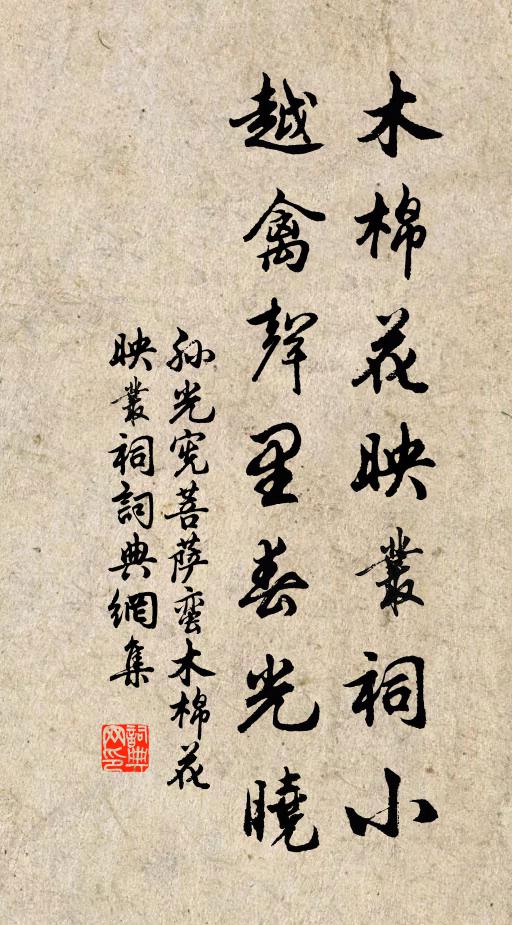 木棉花映叢祠小
越禽聲里春光曉
孙光宪菩萨蛮木棉花
映叢祠詞典網集
詞典
网印